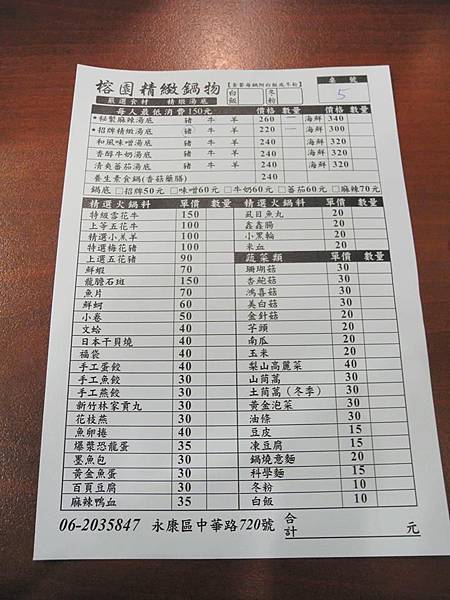 榕園精緻鍋物
嚴選食材 精緻湯底
【套餐每鍋附白飯或冬粉】
白飯 冬粉
桌號
5
每人最低消費150元 價格 數量 價格 數量
*秘製麻辣湯底 豬 牛 羊 260 一 海鮮 340
*招牌精緻湯底 豬 牛 羊 220 一 海鮮 300
和風味噌湯底 豬 牛 羊 240 海鮮 320
香醇牛奶湯底 豬 牛 羊 240 海鮮 320
清爽蕃茄湯底 豬 牛 羊 240 海鮮 320
養生素食鍋(香菇藥膳) 240
鍋底 □招牌50元 □味噌60元 □牛奶60元 □蕃茄60元 □麻辣70元
精選火鍋料 單價 數量 精選火鍋料 單價 數量
特級雪花牛 150 虱目魚丸 20
上等五花牛 100 鑫鑫腸 20
精選小羔羊 100 小黑輪 20
特選梅花豬 100 米血 20
上選五花豬 90 蔬菜類 單價 數量
鮮蝦 70 珊瑚菇 30
龍膽石斑 150 杏鮑菇 30
魚片 70 鴻喜菇 30
鮮蚵 60 美白菇 30
小卷 50 金針菇 20
文蛤 40 芋頭 20
日本干貝燒 40 南瓜 20
福袋 40 玉米 20
手工蛋餃 40 梨山高麗菜 40
手工魚餃 30 山茼萵 30
手工燕餃 30 土茼萵（冬季） 30
新竹林家貢丸 30 黃金泡菜 30
花枝燕 30 油條 30
魚卵捲 40 豆皮 15
爆漿恐龍蛋 35 凍豆腐 15
墨魚包 30 鍋燒意麵 20
黃金魚蛋 30 科學麵 15
百頁豆腐 30 冬粉 10
麻辣鴨血 35 白飯 10
06-2035847 永康區中華路720號 合計 元